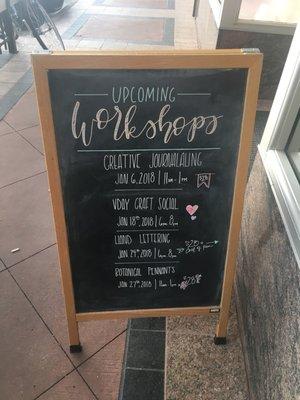 UPCOMING
workshops
CREATIVE JOURNALALING
JAN 6, 2018 | 11AM-1PM
VDAY CRAFT SOCIAL
JAN 18TH, 2018 | 6PM-8PM
HAND LETTERING
JAN 24TH, 2018 | 6PM-8PM
BOTANICAL PENNANTS
JAN 27TH, 2018 | 11AM-1PM